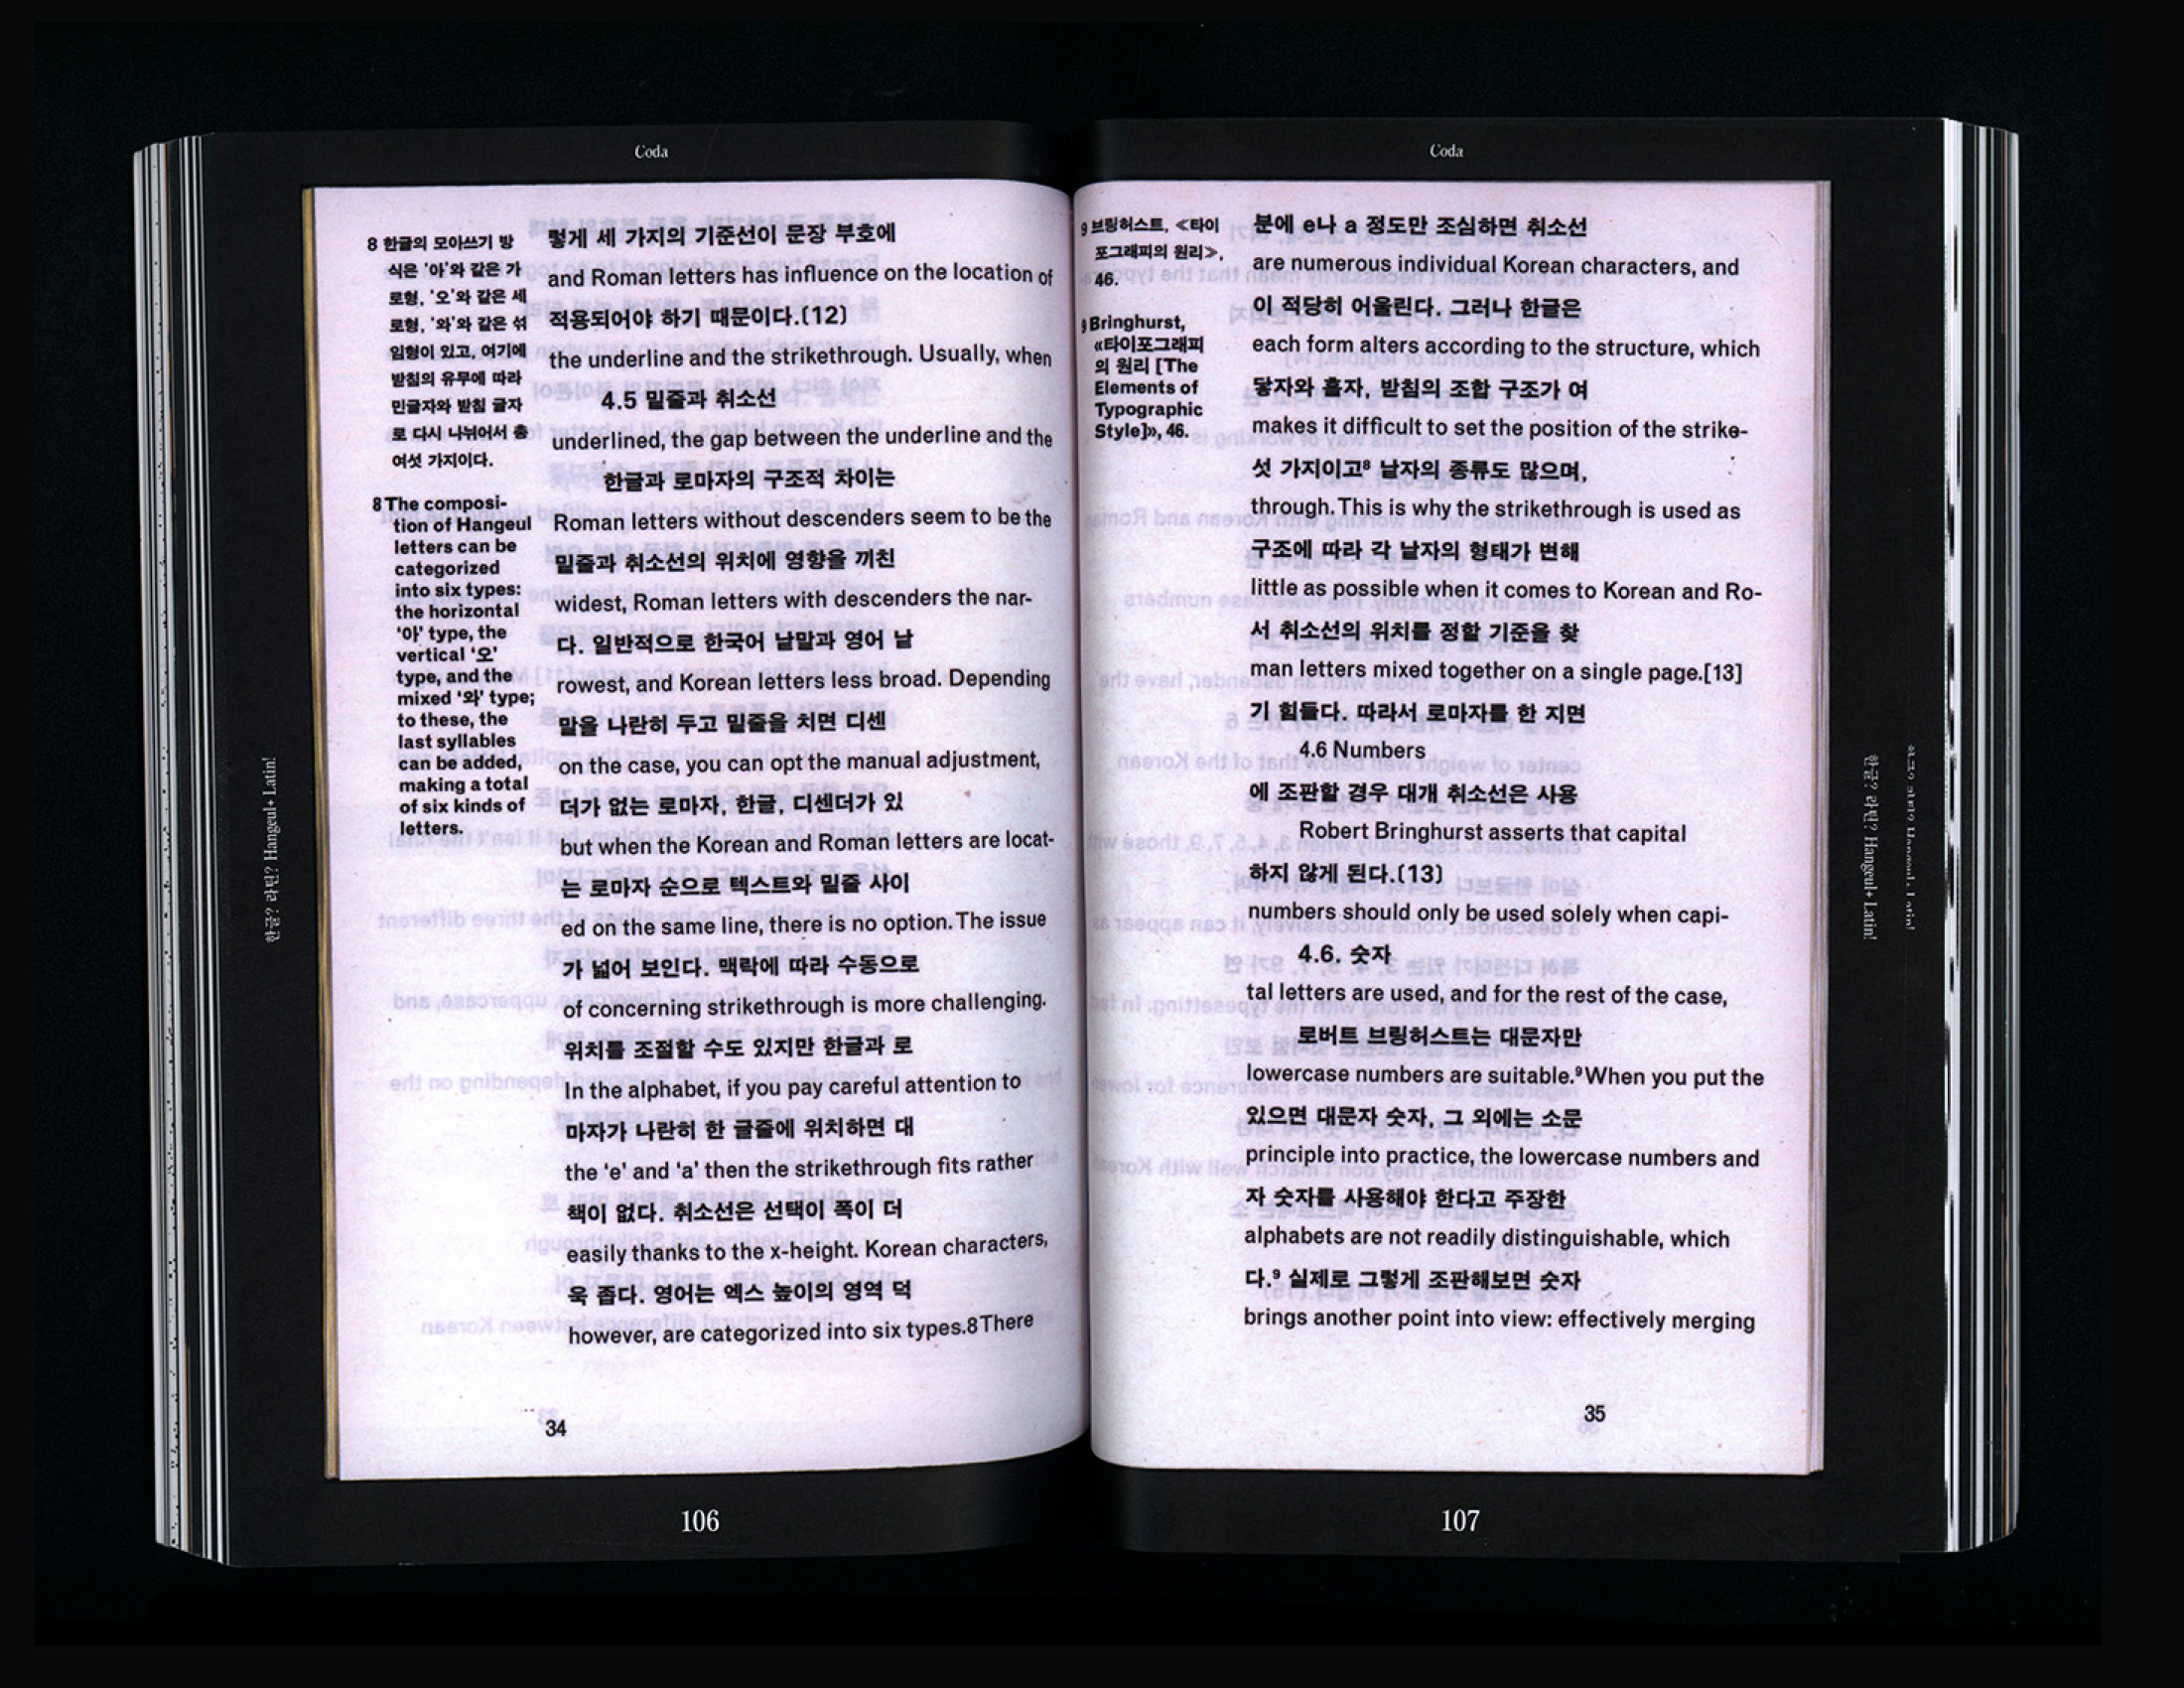 Coda
8 한글의 모아쓰기 방
식은 ‘아’와 같은 가
로형, ‘오’와 같은 세
로형, ‘와’와 같은 섞
임형이 있고, 여기에
받침의 유무에 따라
민글자와 받침 글자
로 다시 나뉘어서 총
여섯 가지이다.
8 The composi-
tion of Hangeul
letters can be
categorized
into six types:
the horizontal
‘아’ type, the
vertical ‘오’
type, and the
mixed ‘와’ type;
to these, the
last syllables
can be added,
making a total
of six kinds of
letters.
렇게 세 가지의 기준선이 문장 부호에
and Roman letters has influence on the location of
적용되어야 하기 때문이다.(12)
the underline and the strikethrough. Usually, when
4.5 밑줄과 취소선
underlined, the gap between the underline and the
한글과 로마자의 구조적 차이는
Roman letters without descenders seem to be the
밑줄과 취소선의 위치에 영향을 끼친
widest, Roman letters with descenders the nar-
다. 일반적으로 한국어 낱말과 영어 낱
rowest, and Korean letters less broad. Depending
말을 나란히 두고 밑줄을 치면 디센
on the case, you can opt the manual adjustment,
더가 없는 로마자, 한글, 디센더가 있
but when the Korean and Roman letters are locat-
는 로마자 순으로 텍스트와 밑줄 사이
ed on the same line, there is no option. The issue
가 넓어 보인다. 맥락에 따라 수동으로
of concerning strikethrough is more challenging.
위치를 조절할 수도 있지만 한글과 로
In the alphabet, if you pay careful attention to
마자가 나란히 한 글줄에 위치하면 대
the ‘e’ and ‘a’ then the strikethrough fits rather
책이 없다. 취소선은 선택이 폭이 더
easily thanks to the x-height. Korean characters,
욱 좁다. 영어는 엑스 높이의 영역 덕
however, are categorized into six types.8 There
34
106
한글? 라틴? Hangeul+ Latin!
Coda
9 브링허스트, 《타이
포그래피의 원리》,
46.
9 Bringhurst,
«타이포그래피
의 원리 [The
Elements of
Typographic
Style]», 46.
분에 e나 a 정도만 조심하면 취소선
are numerous individual Korean characters, and
이 적당히 어울린다. 그러나 한글은
each form alters according to the structure, which
닿자와 홀자, 받침의 조합 구조가 여
makes it difficult to set the position of the strike-
섯 가지이고8 낱자의 종류도 많으며,
through. This is why the strikethrough is used as
구조에 따라 각 낱자의 형태가 변해
little as possible when it comes to Korean and Ro-
서 취소선의 위치를 정할 기준을 찾
man letters mixed together on a single page.[13]
기 힘들다. 따라서 로마자를 한 지면
4.6 Numbers
에 조판할 경우 대개 취소선은 사용
Robert Bringhurst asserts that capital
하지 않게 된다.(13)
numbers should only be used solely when capi-
4.6. 숫자
tal letters are used, and for the rest of the case,
로버트 브링허스트는 대문자만
lowercase numbers are suitable.9 When you put the
있으면 대문자 숫자, 그 외에는 소문
principle into practice, the lowercase numbers and
자 숫자를 사용해야 한다고 주장한
alphabets are not readily distinguishable, which
다.9 실제로 그렇게 조판해보면 숫자
brings another point into view: effectively merging
35
107
한글? 라틴? Hangeul+ Latin!